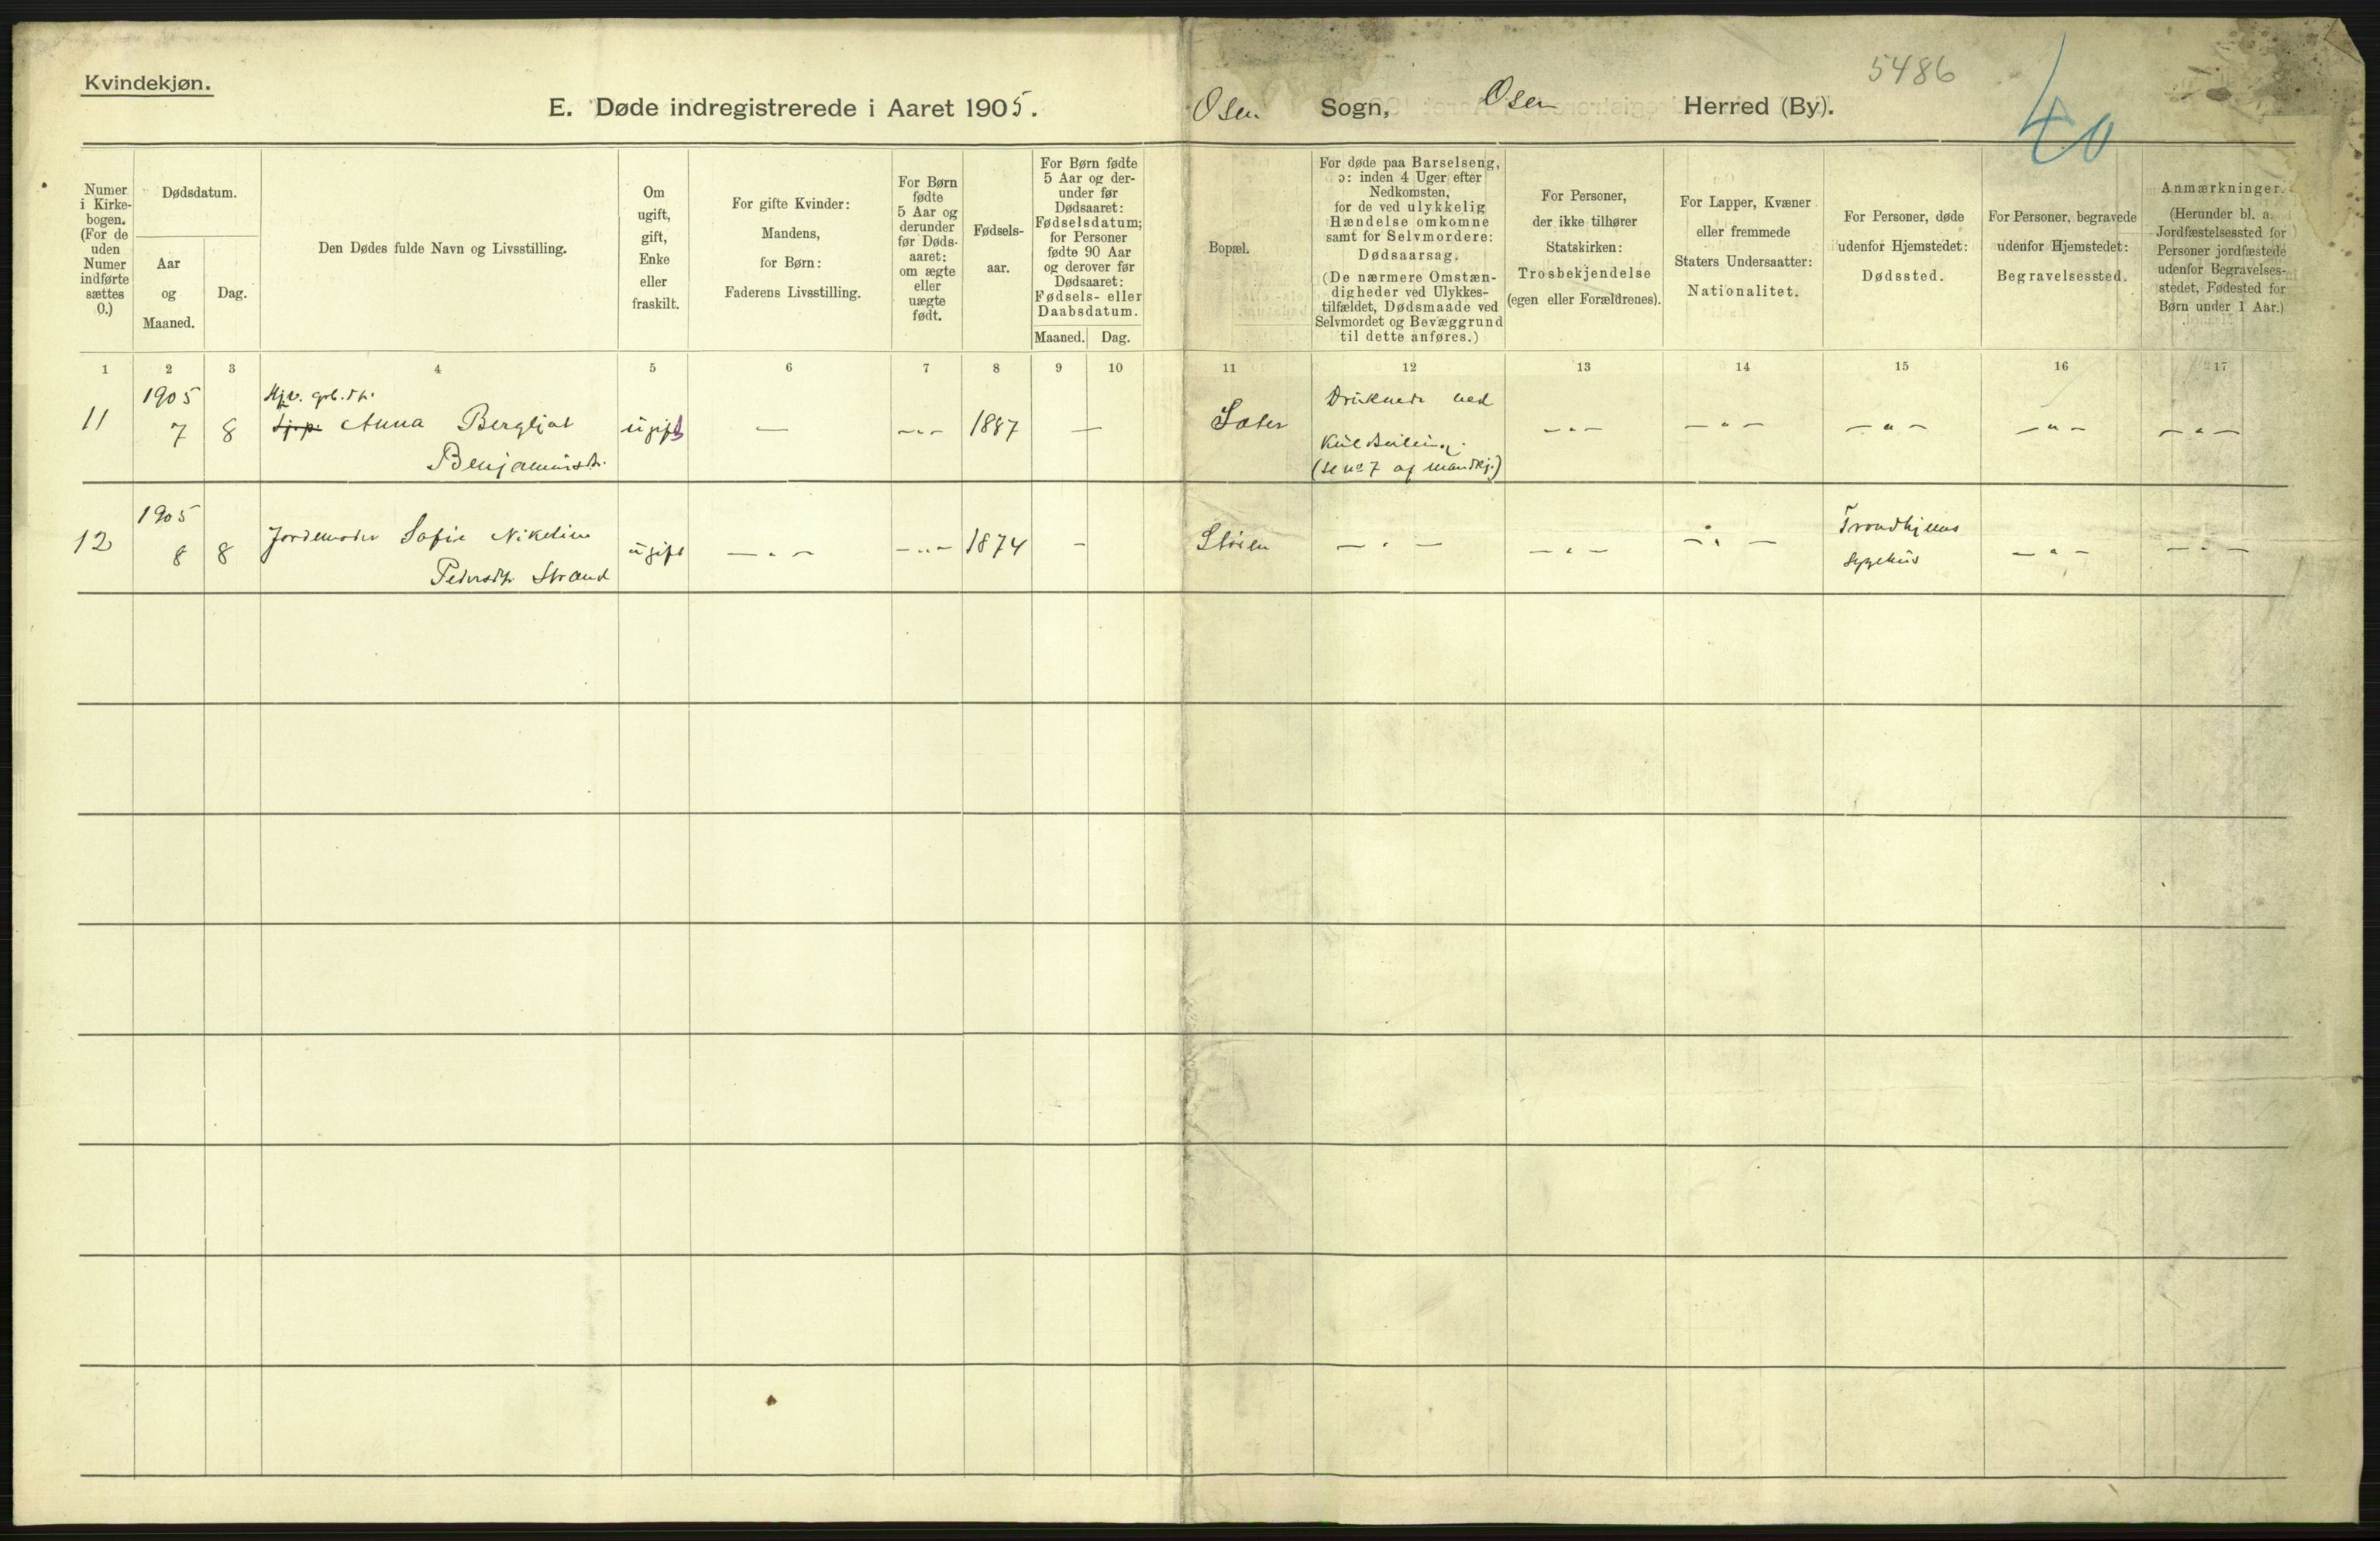 Kvindekjøn.
E. Døde indregistrerede i Aaret 1905.
Osen Sogn, Osen Herred (By).
5486
40
Numer
i Kirke-
bogen.
(For de
uden
Numer
indførte
sættes
0.)
Dødsdatum.
Aar
og
Maaned.
Dag.
Den Dødes fulde Navn og Livsstilling.
Om
ugift,
gift,
Enke
eller
fraskilt.
For gifte Kvinder:
Mandens,
for Børn:
Faderens Livsstilling.
For Børn
fødte
5 Aar og
derunder
før Døds-
aaret:
om ægte
eller
uægte
født.
Fødsels-
aar.
For Børn fødte
5 Aar og der-
under før
Dødsaaret:
Fødselsdatum;
for Personer
fødte 90 Aar
og derover før
Dødsaaret:
Fødsels- eller
Daabsdatum.
Maaned.
Dag.
Bopæl.
For døde paa Barselseng,
ɔ: inden 4 Uger efter
Nedkomsten,
for de ved ulykkelig
Hændelse omkomne
samt for Selvmordere:
Dødsaarsag.
(De nærmere Omstæn-
digheder ved Ulykkes-
tilfældet, Dødsmaade ved
Selvmordet og Bevæggrund
til dette anføres.)
For Personer,
der ikke tilhører
Statskirken:
Trosbekjendelse
(egen eller Forældrenes).
For Lapper, Kvæner
eller fremmede
Staters Undersaatter:
Nationalitet.
For Personer, døde
udenfor Hjemstedet:
Dødssted.
For Personer, begravede
udenfor Hjemstedet:
Begravelsessted.
Anmærkninger.
(Herunder bl. a.
Jordfæstelsessted for
Personer jordfæstede
udenfor Begravelses-
stedet, Fødested for
Børn under 1 Aar.)
1 2 3 4 5 6 7 8 9 10 11 12 13 14 15 16 17
1905
11 7 8
Anna Bergljot
Benjaminsdt.
ugift — -"- 1887 —
Sæter
Druknede ved
Kuldseiling.
(se no 7 af mandkj.)
-"- -"- -"- -"- -"-
1905
12 8 8
Jordemoder Sofie Nikoline
Pedersdt. Strand
ugift -"- -"- 1874 -
Støien
-"- -"- -"-
Trondhjems
Sygehus
-"- -"-